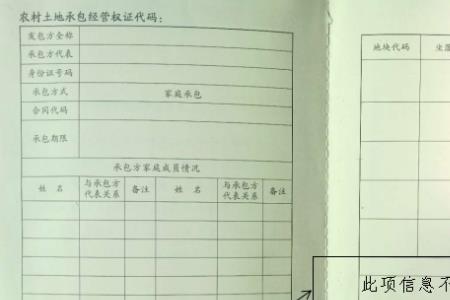 农村土地承包经营权证代码：
发包方全称
承包方代表
身份证号码
承包方式 家庭承包
合同代码
承包期限
承包方家庭成员情况
姓 名 与承包方代表关系 备注 姓 名 与承包方代表关系 备注
地块代码 坐落
此项信息不